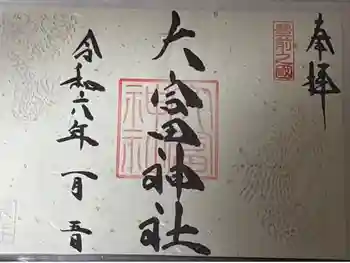 奉拝
豊前之國
大富神社
令和六年一月吉日